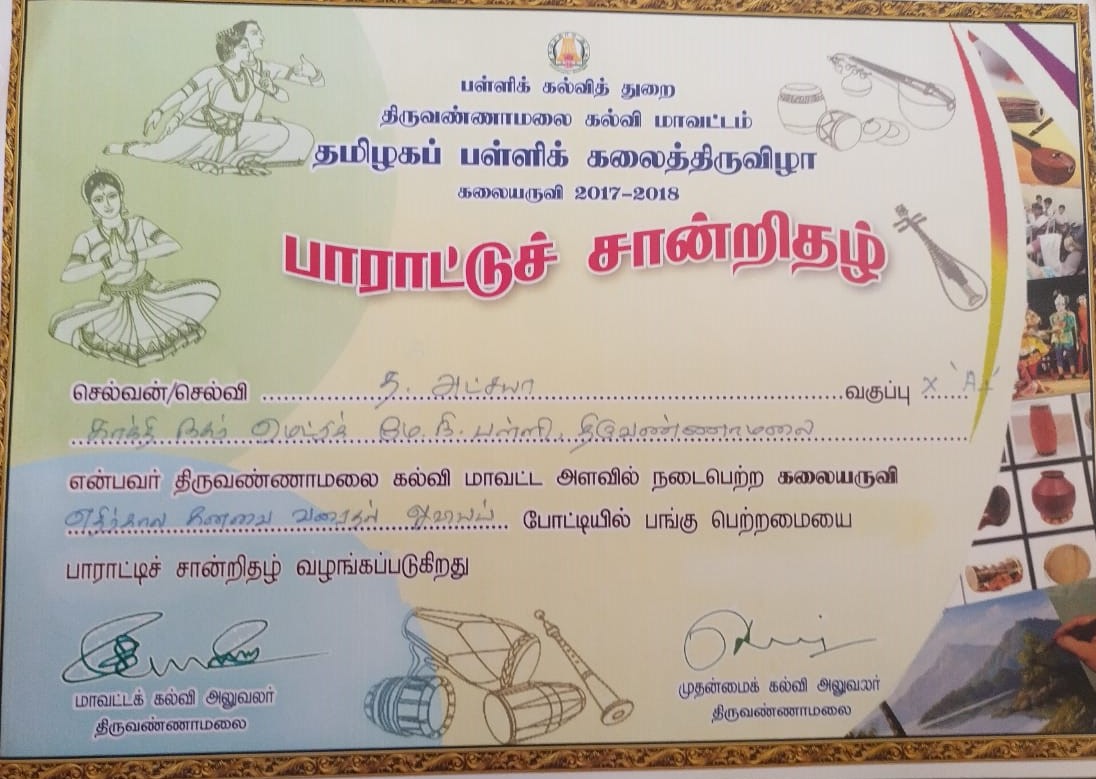 பள்ளிக் கல்வித் துறை
திருவண்ணாமலை கல்வி மாவட்டம்
தமிழகப் பள்ளிக் கலைத்திருவிழா
கலையருவி 2017-2018
பாராட்டுச் சான்றிதழ்
செல்வன்/செல்வி த. அட்சயா வகுப்பு X 'A1'
காந்தி நகர் மெட்ரிக் மே.நி. பள்ளி, திருவண்ணாமலை
என்பவர் திருவண்ணாமலை கல்வி மாவட்ட அளவில் நடைபெற்ற கலையருவி
எதிர்கால கனவை வரைதல் போட்டியில் பங்கு பெற்றமையை
பாராட்டிச் சான்றிதழ் வழங்கப்படுகிறது
மாவட்டக் கல்வி அலுவலர்
திருவண்ணாமலை
முதன்மைக் கல்வி அலுவலர்
திருவண்ணாமலை